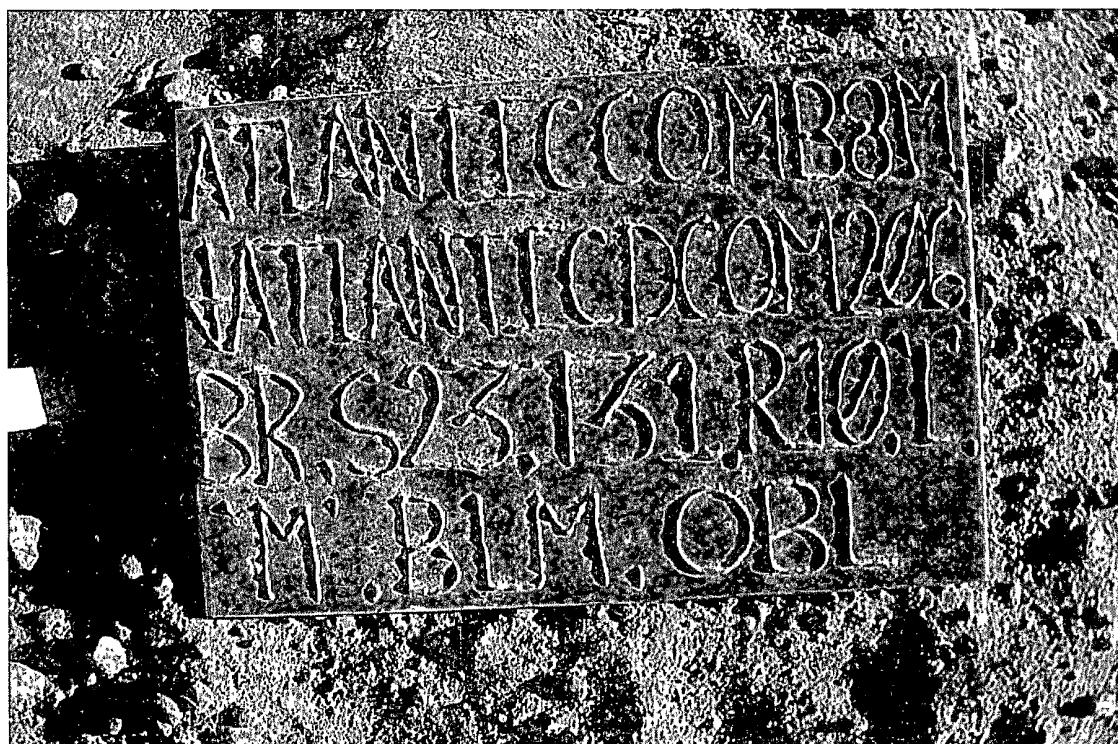 ATLANTIC COMB8M
NATLANTICDCOM206.
BR.S23.131.R10.'I'.
'M'.B1M.OBL